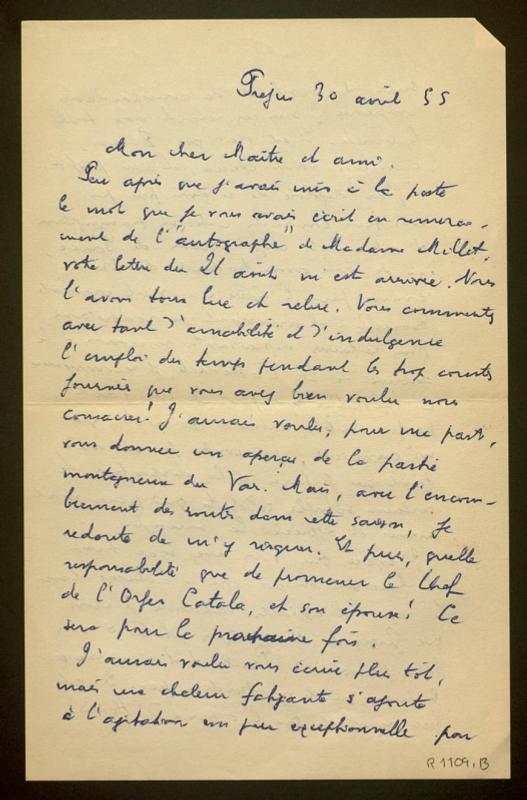 Fréjus 30 avril 55
Mon cher Maître et ami.
Peu après que j'avais mis à la poste
le mot que je vous avais écrit en remercie-
ment de l'"autographe" de Madame Millet,
votre lettre du 21 août m'est arrivée. Nous
l'avons tous lue et relue. Vous commentez
avec tant d'amabilité et d'indulgence
l'emploi du temps pendant les trop courtes
journées que vous avez bien voulu nous
consacrer! J'aurais voulu, pour ma part,
vous donner un aperçu de la partie
montagneuse du Var. Mais, avec l'encom-
brement des routes dans cette saison, je
redoute de m'y risquer. Et puis, quelle
responsabilité que de promener le Chef
de l'Orfeo Catala, et son épouse! Ce
sera pour la prochaine fois.
J'aurais voulu vous écrire plus tôt,
mais une chaleur fatigante s'ajoute
à l'agitation un peu exceptionnelle pour
R 1109.B